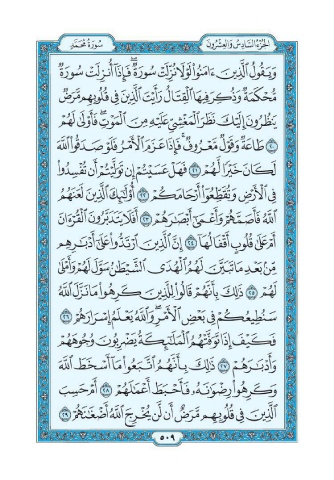 الجزء السادس والعشرون
سورة محمد
وَيَقُولُ الَّذِينَ ءَامَنُوا لَوْلَا نُزِّلَتْ سُورَةٌ ۖ فَإِذَا أُنزِلَتْ سُورَةٌ
مُّحْكَمَةٌ وَذُكِرَ فِيهَا الْقِتَالُ رَأَيْتَ الَّذِينَ فِي قُلُوبِهِم مَّرَضٌ
يَنظُرُونَ إِلَيْكَ نَظَرَ الْمَغْشِيِّ عَلَيْهِ مِنَ الْمَوْتِ ۖ فَأَوْلَىٰ لَهُمْ
٢٠ طَاعَةٌ وَقَوْلٌ مَّعْرُوفٌ ۚ فَإِذَا عَزَمَ الْأَمْرُ فَلَوْ صَدَقُوا اللَّهَ
لَكَانَ خَيْرًا لَّهُمْ ٢١ فَهَلْ عَسَيْتُمْ إِن تَوَلَّيْتُمْ أَن تُفْسِدُوا
فِي الْأَرْضِ وَتُقَطِّعُوا أَرْحَامَكُمْ ٢٢ أُولَٰئِكَ الَّذِينَ لَعَنَهُمُ
اللَّهُ فَأَصَمَّهُمْ وَأَعْمَىٰ أَبْصَارَهُمْ ٢٣ أَفَلَا يَتَدَبَّرُونَ الْقُرْءَانَ
أَمْ عَلَىٰ قُلُوبٍ أَقْفَالُهَا ٢٤ إِنَّ الَّذِينَ ارْتَدُّوا عَلَىٰ أَدْبَارِهِم
مِّن بَعْدِ مَا تَبَيَّنَ لَهُمُ الْهُدَى ۙ الشَّيْطَانُ سَوَّلَ لَهُمْ وَأَمْلَىٰ
لَهُمْ ٢٥ ذَٰلِكَ بِأَنَّهُمْ قَالُوا لِلَّذِينَ كَرِهُوا مَا نَزَّلَ اللَّهُ
سَنُطِيعُكُمْ فِي بَعْضِ الْأَمْرِ ۖ وَاللَّهُ يَعْلَمُ إِسْرَارَهُمْ ٢٦
فَكَيْفَ إِذَا تَوَفَّتْهُمُ الْمَلَائِكَةُ يَضْرِبُونَ وُجُوهَهُمْ
وَأَدْبَارَهُمْ ٢٧ ذَٰلِكَ بِأَنَّهُمُ اتَّبَعُوا مَا أَسْخَطَ اللَّهَ
وَكَرِهُوا رِضْوَانَهُ فَأَحْبَطَ أَعْمَالَهُمْ ٢٨ أَمْ حَسِبَ
الَّذِينَ فِي قُلُوبِهِم مَّرَضٌ أَن لَّن يُخْرِجَ اللَّهُ أَضْغَانَهُمْ ٢٩
٥٠٩